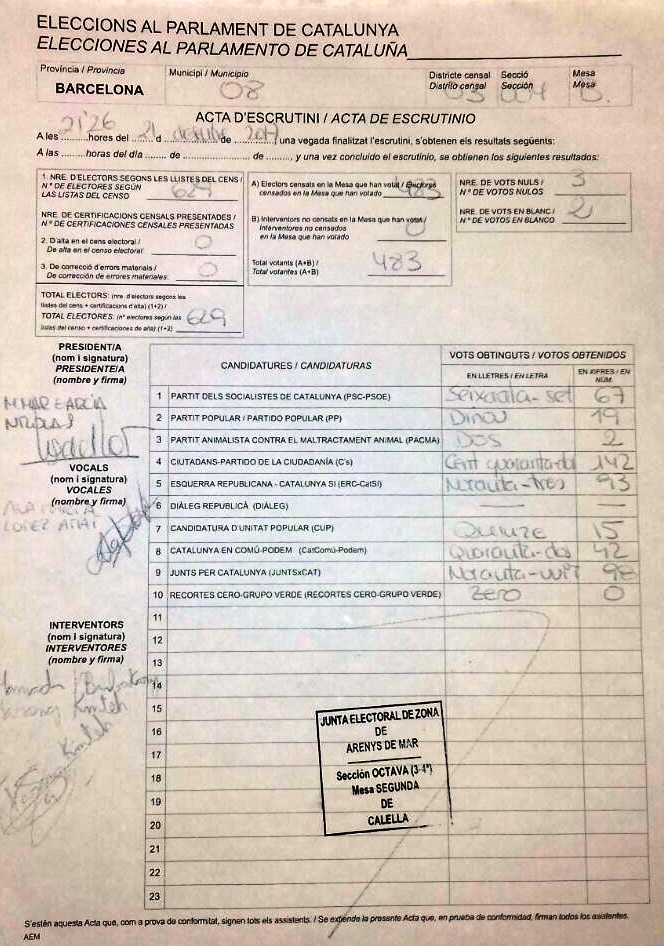 ELECCIONS AL PARLAMENT DE CATALUNYA
ELECCIONES AL PARLAMENTO DE CATALUÑA
Província / Provincia
BARCELONA
Municipi / Municipio
08
Districte censal
Distrito censal
03
Secció
Sección
004
Mesa
Mesa
B.
ACTA D'ESCRUTINI / ACTA DE ESCRUTINIO
A les 21'26 hores del 21 d desembre de 2017, una vegada finalitzat l'escrutini, s'obtenen els resultats següents:
A las ......... horas del día ...... de ............... de .........., y una vez concluido el escrutinio, se obtienen los siguientes resultados:
1. NRE. D'ELECTORS SEGONS LES LLISTES DEL CENS /
Nº DE ELECTORES SEGÚN
LAS LISTAS DEL CENSO
629
NRE. DE CERTIFICACIONS CENSALS PRESENTADES /
Nº DE CERTIFICACIONES CENSALES PRESENTADAS
2. D'alta en el cens electoral /
De alta en el censo electoral:
0
3. De correcció d'errors materials /
De corrección de errores materiales:
0
TOTAL ELECTORS: (nre. d'electors segons les
llistes del cens + certificacions d'alta) (1+2) /
TOTAL ELECTORES: (nº electores según las
listas del censo + certificaciones de alta) (1+2)
629
A) Electors censats en la Mesa que han votat / Electores
censados en la Mesa que han votado
483
B) Interventors no censats en la Mesa que han votat /
Interventores no censados
en la Mesa que han votado
0
Total votants (A+B) /
Total votantes (A+B)
483
NRE. DE VOTS NULS /
Nº DE VOTOS NULOS
3
NRE. DE VOTS EN BLANC /
Nº DE VOTOS EN BLANCO
2
PRESIDENT/A
(nom i signatura)
PRESIDENTE/A
(nombre y firma)
M MAR GARCÍA
NICOLAS
VOCALS
(nom i signatura)
VOCALES
(nombre y firma)
LOPEZ
INTERVENTORS
(nom i signatura)
INTERVENTORES
(nombre y firma)
Kinteh
Kinteh
CANDIDATURES / CANDIDATURAS
VOTS OBTINGUTS / VOTOS OBTENIDOS
EN LLETRES / EN LETRA
EN XIFRES / EN NÚM.
1 PARTIT DELS SOCIALISTES DE CATALUNYA (PSC-PSOE) Seixanta-set 67
2 PARTIT POPULAR / PARTIDO POPULAR (PP) Dinou 19
3 PARTIT ANIMALISTA CONTRA EL MALTRACTAMENT ANIMAL (PACMA) Dos 2
4 CIUTADANS-PARTIDO DE LA CIUDADANÍA (C's) Cent quaranta-dos 142
5 ESQUERRA REPUBLICANA - CATALUNYA SI (ERC-CatSI) Noranta-tres 93
6 DIÀLEG REPUBLICÀ (DIÀLEG) — —
7 CANDIDATURA D'UNITAT POPULAR (CUP) Quinze 15
8 CATALUNYA EN COMÚ-PODEM (CatComú-Podem) Quaranta-dos 42
9 JUNTS PER CATALUNYA (JUNTSxCAT) Noranta-vuit 98
10 RECORTES CERO-GRUPO VERDE (RECORTES CERO-GRUPO VERDE) Zero 0
11
12
13
14
15
16
17
18
19
20
21
22
23
JUNTA ELECTORAL DE ZONA
DE
ARENYS DE MAR
Sección OCTAVA (3-4ª)
Mesa SEGUNDA
DE
CALELLA
S'estén aquesta Acta que, com a prova de conformitat, signen tots els assistents. / Se extiende la presente Acta que, en prueba de conformidad, firman todos los asistentes.
AEM